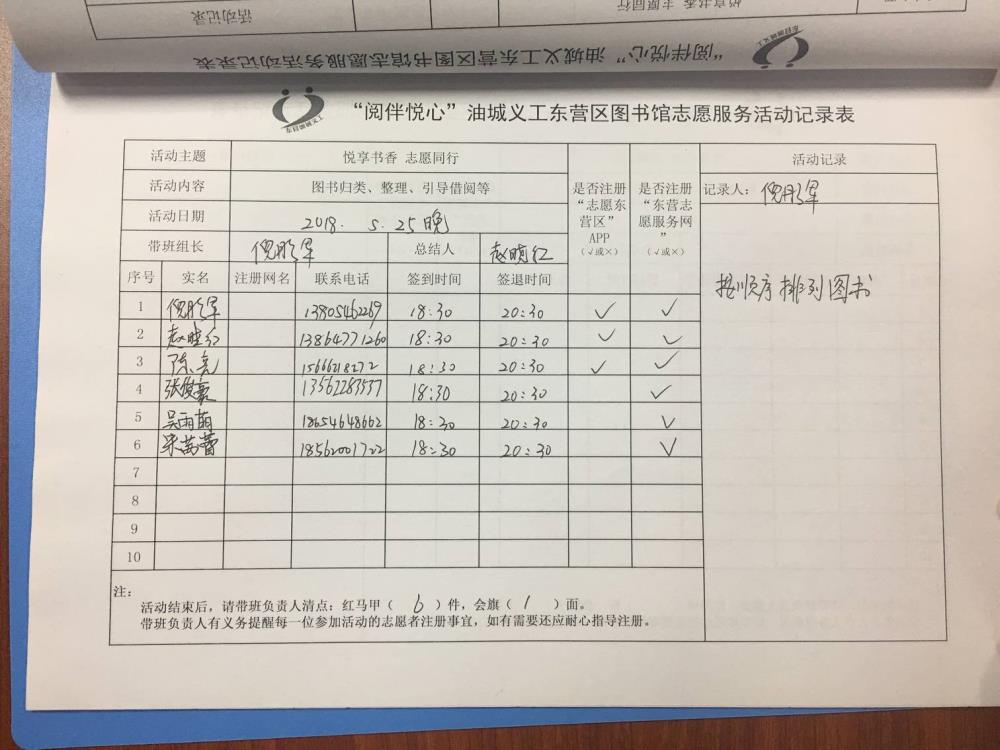 活动记录
悦享书香 志愿同行
“阅伴悦心”油城义工东营区图书馆志愿服务活动记录表
东营油城义工
“阅伴悦心”油城义工东营区图书馆志愿服务活动记录表
活动主题 悦享书香 志愿同行 是否注册“志愿东营区”APP(√或×) 是否注册“东营志愿服务网”(√或×) 活动记录
活动内容 图书归类、整理、引导借阅等 记录人：倪彤军
活动日期 2018. 5. 25晚
带班组长 倪彤军 总结人 赵晓红
序号 实名 注册网名 联系电话 签到时间 签退时间
按顺序排列图书
1 倪彤军 13805462269 18:30 20:30 √ √
2 赵晓红 13864771260 18:30 20:30 √ √
3 陈亮 1566218272 18:30 20:30 √ √
4 张俊豪 13562283537 18:30 20:30 √
5 吴雨萌 18654648662 18:30 20:30 √
6 宋茜蕾 18562001722 18:30 20:30 √
7
8
9
10
注：
活动结束后，请带班负责人清点：红马甲（ 6 ）件，会旗（ 1 ）面。
带班负责人有义务提醒每一位参加活动的志愿者注册事宜，如有需要还应耐心指导注册。